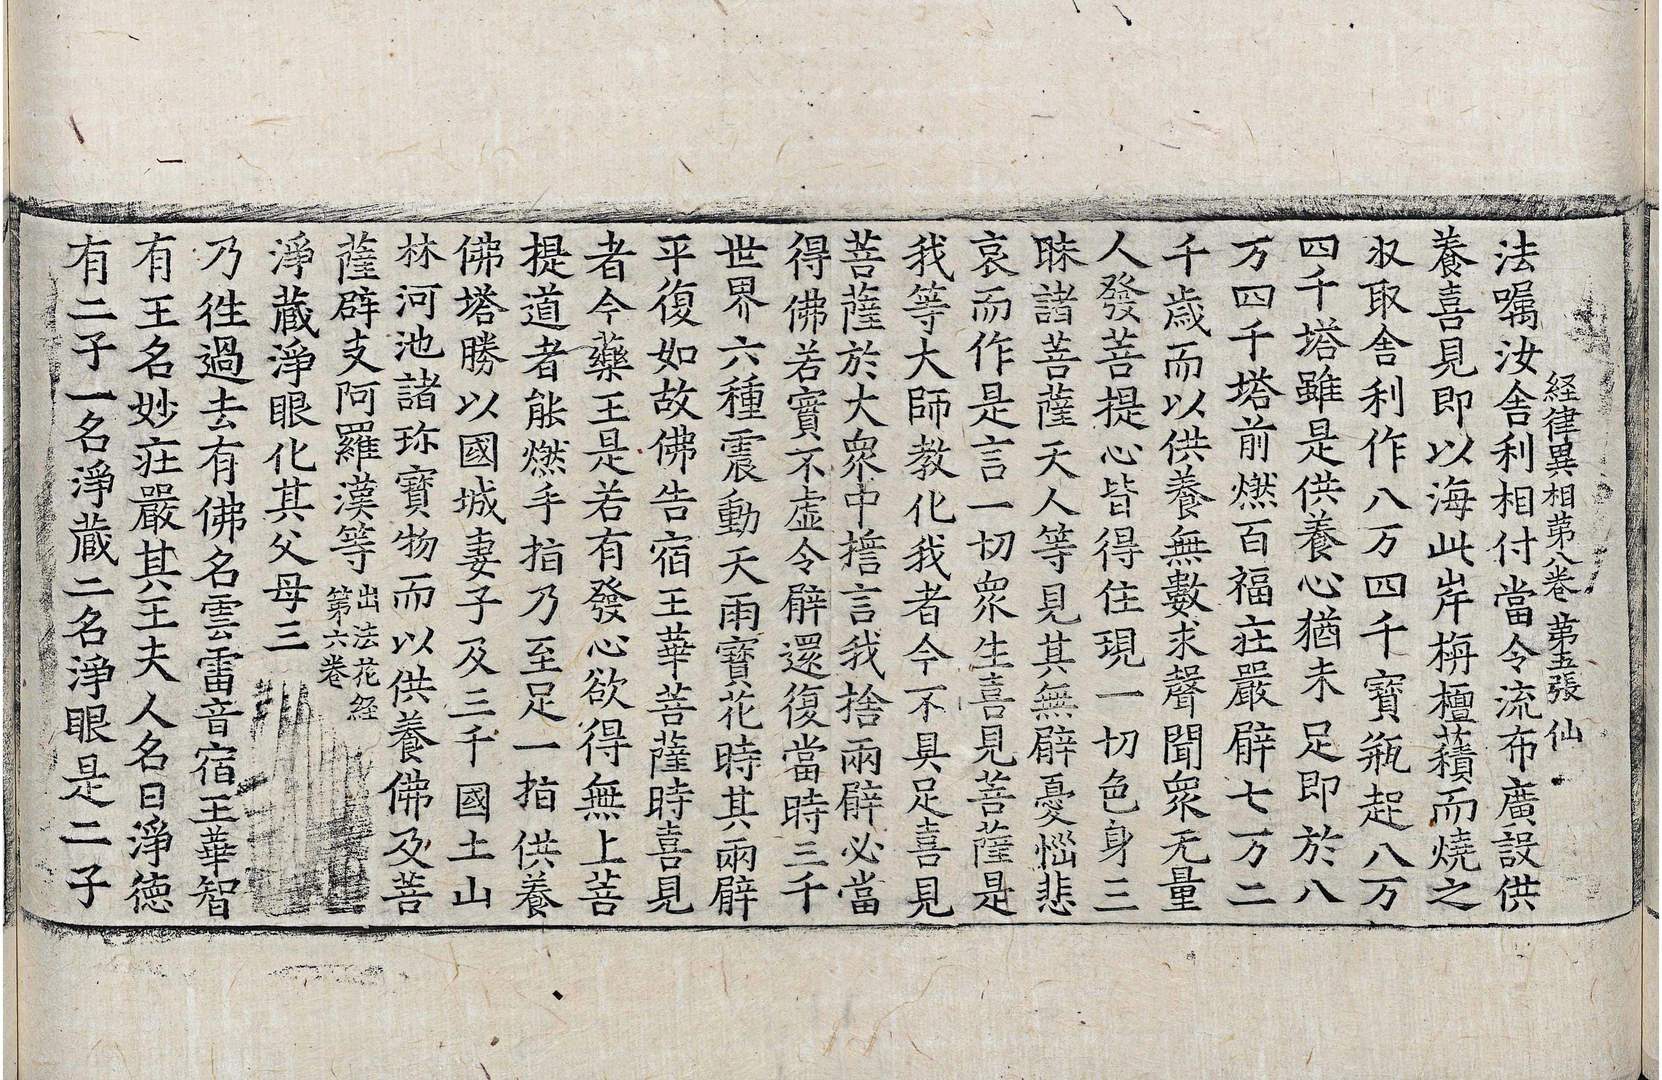 経律異相苐八卷 苐五張 仙
法囑汝舍利相付當令流布廣設供
養喜見即以海此岸栴檀䕆而燒之
収取舍利作八万四千寶瓶起八万
四千塔雖是供養心猶未足即於八
万四千塔前燃百福莊嚴臂七万二
千歲而以供養無數求聲聞衆无量
人發菩提心皆得住現一切色身三
昧諸菩薩天人等見其無臂憂惱悲
哀而作是言一切衆生喜見菩薩是
我等大師教化我者今不具足喜見
菩薩於大衆中擔言我捨兩臂必當
得佛若實不虛令臂還復當時三千
世界六種震動天雨寶花時其兩臂
平復如故佛告宿王華菩薩時喜見
者今藥王是若有發心欲得無上菩
提道者能燃手指乃至足一指供養
佛塔勝以國城妻子及三千國土山
林河池諸珎寶物而以供養佛及菩
薩辟支阿羅漢等 出法花経
苐六卷
淨藏淨眼化其父母三
乃徃過去有佛名雲雷音宿王華智
有王名妙莊嚴其王夫人名曰淨德
有二子一名淨藏二名淨眼是二子